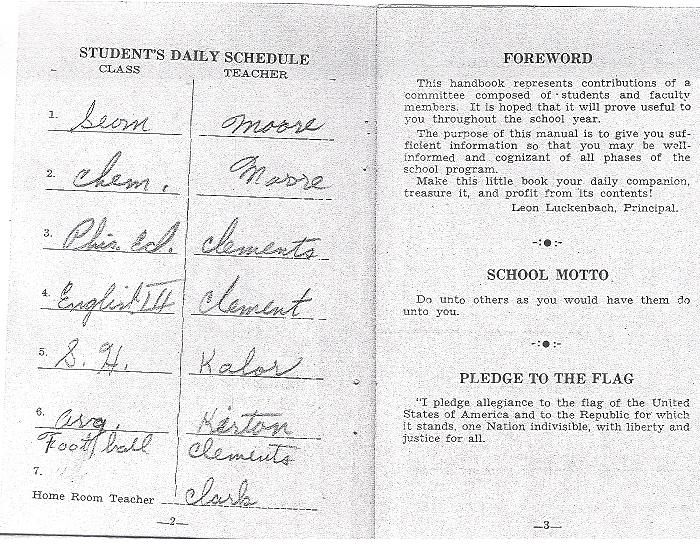 STUDENT'S DAILY SCHEDULE
CLASS TEACHER
1. Geom Moore
2. Chem. Moore
3. Phis. Ed. Clements
4. English III Clement
5. S. H. Kalor
6. Arg. Karton
Football Clements
7.
Home Room Teacher Clark
—2—
FOREWORD
This handbook represents contributions of a
committee composed of students and faculty
members. It is hoped that it will prove useful to
you throughout the school year.
The purpose of this manual is to give you suf-
ficient information so that you may be well-
informed and cognizant of all phases of the
school program.
Make this little book your daily companion,
treasure it, and profit from its contents!
Leon Luckenbach, Principal.
SCHOOL MOTTO
Do unto others as you would have them do
unto you.
PLEDGE TO THE FLAG
"I pledge allegiance to the flag of the United
States of America and to the Republic for which
it stands, one Nation indivisible, with liberty and
justice for all.
—3—